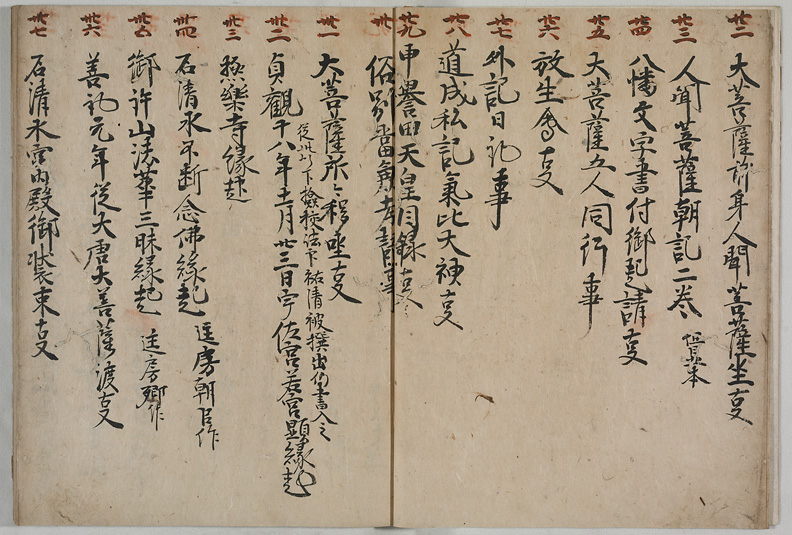 廿二 大菩薩許身人聞菩薩坐事
廿三 人聞菩薩朝記二巻 本
廿四 八幡文字書付御起請事
廿五 大菩薩五人同行事
廿六 放生會事
廿七 外記日記事
廿八 道成私記氣比大神事
廿九 申譽田天皇目録事
卅 俗別當
卅一 大菩薩所々移坐事
從此以下檢校法下祐清被撰出仍書入之
卅二 貞觀十八年 月廿三日宇佐宮若宮顕縁起
卅三 極樂寺縁起
卅四 石清水不断念佛縁起 匡房朝臣作
卅五 御許山法華三昧縁起 匡房卿作
卅六 善記元年従大唐大菩薩渡事
卅七 石清水宮内殿御装束事